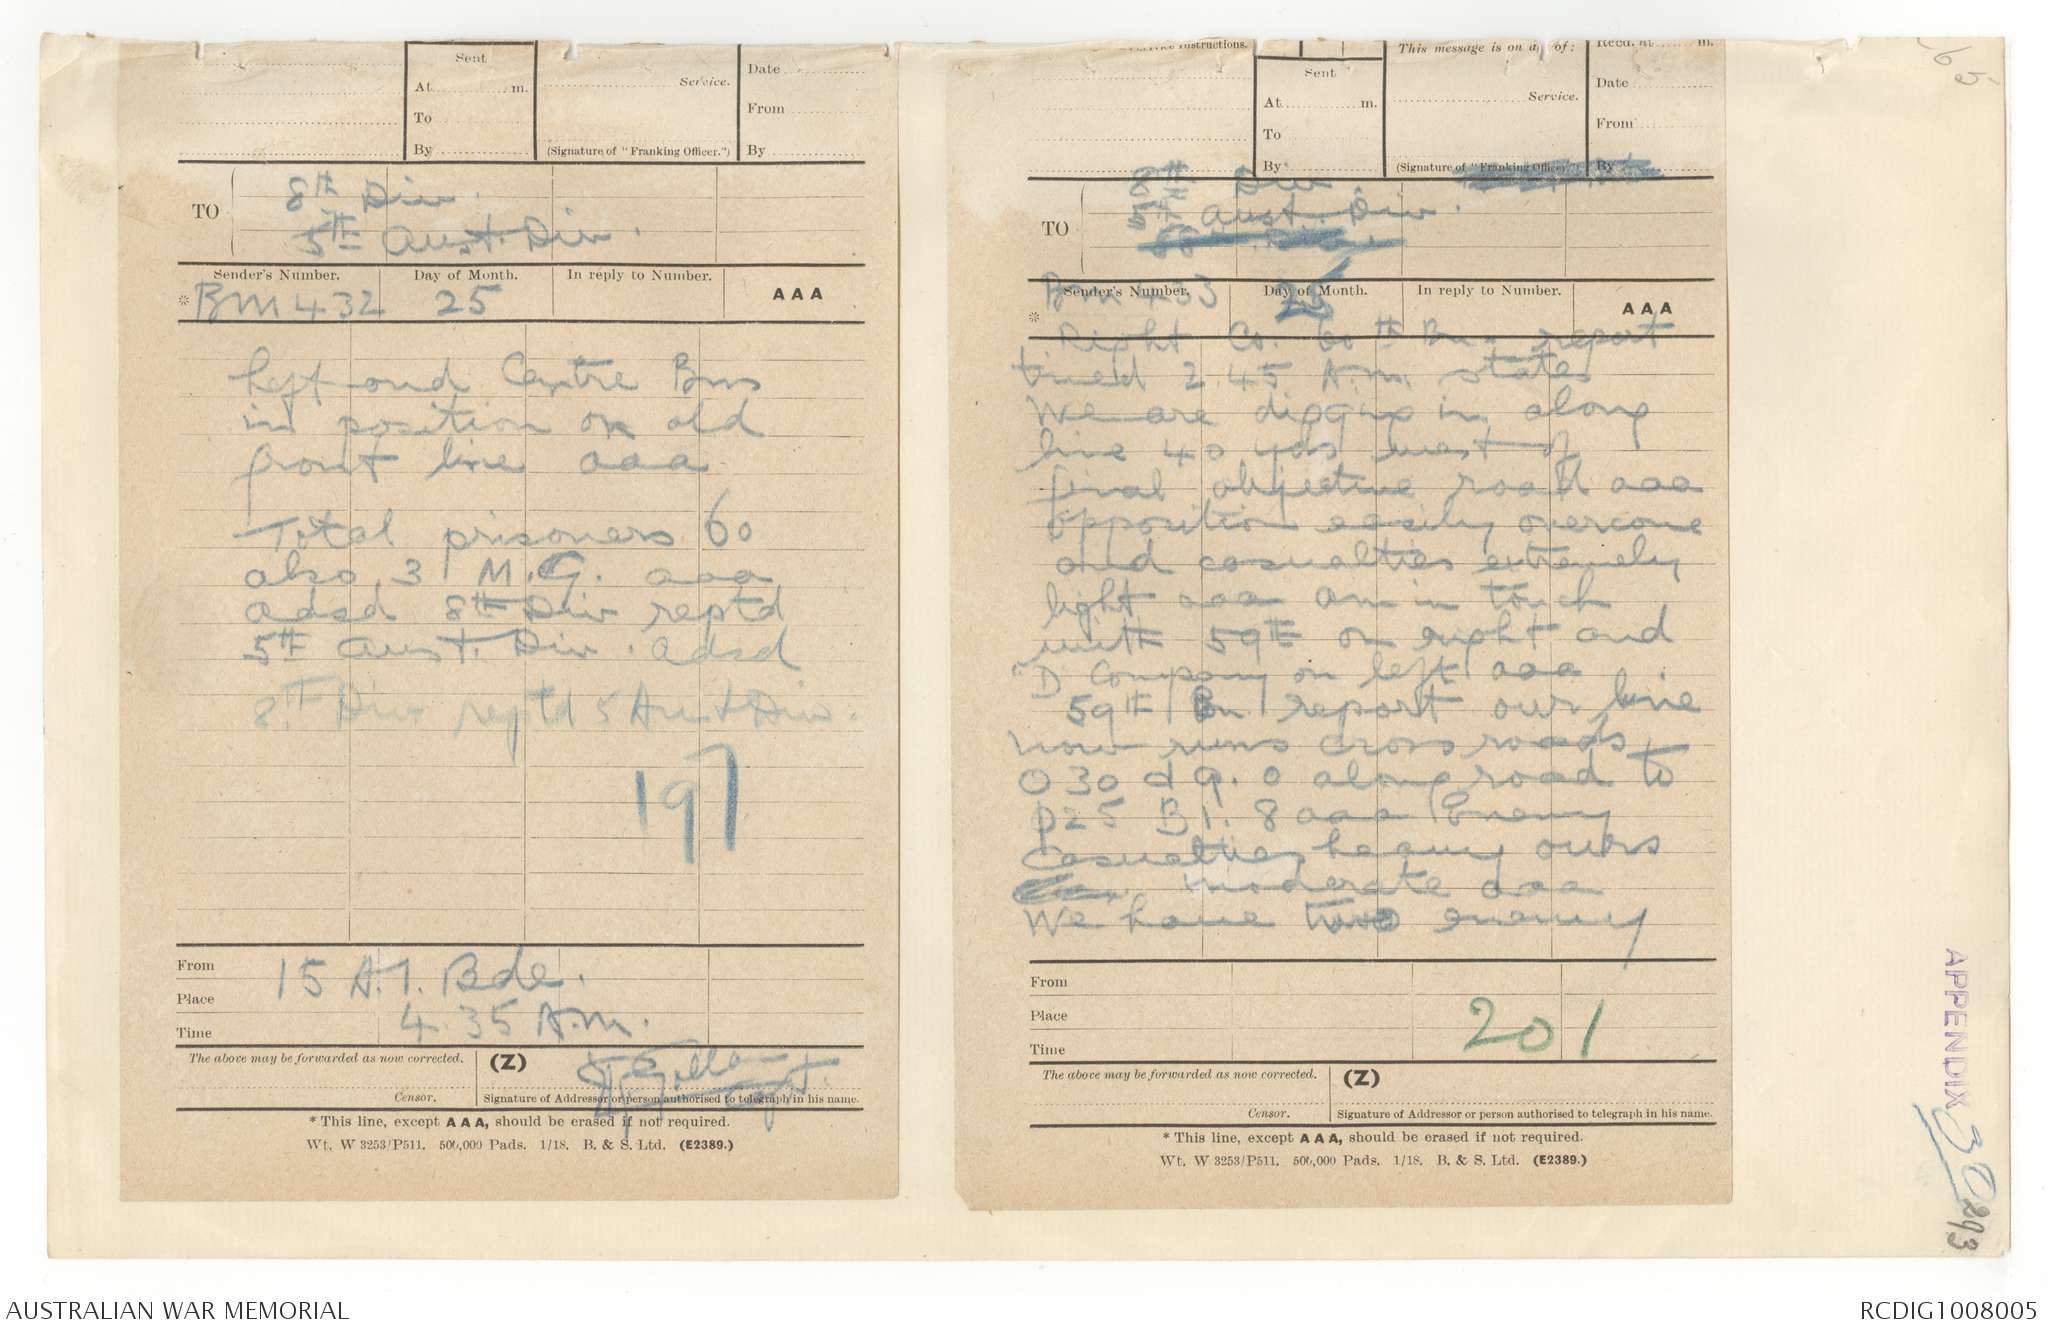 Sent
At ............ m.
To
By
Service.
(Signature of "Franking Officer.")
Date
From
By
TO
8th Div.
5th Aust. Div.
Sender's Number.
Day of Month.
In reply to Number.
AAA
* BM 432
25
Left and Centre Bns
in position on old
front line aaa
Total prisoners 60
also 3 M.G. aaa
adsd 8th Div reptd
5th Aust. Div. adsd
8th Div reptd 5 Aust Div.
197
From
15 A.I. Bde.
Place
Time
4.35 A.m.
The above may be forwarded as now corrected.
(Z)
Capt.
Censor.
Signature of Addressor or person authorised to telegraph in his name.
* This line, except AAA, should be erased if not required.
Wt. W 3253/P511. 500,000 Pads. 1/18. B. & S. Ltd. (E2389.)
Service Instructions.
Sent
At ............ m.
To
By
This message is on a/c of:
Service.
(Signature of "Franking Officer.")
Recd. at ........ m.
Date
From
By
TO
8th Div
5th Aust. Div.
Sender's Number.
Day of Month.
In reply to Number.
AAA
* BM 433
25
Right Co. 60th Bn. report
timed 2.45 A.m. states
We are digging in along
line 40 yds west of
final objective road aaa
opposition easily overcome
and casualties extremely
light aaa am in touch
with 59th on right and
"D Company on left aaa
59th Bn report our line
now runs cross roads
O 30 d 9.0 along road to
P25 B 1.8 aaa Enemy
casualties heavy ours
moderate aaa
We have two enemy
From
Place
Time
201
The above may be forwarded as now corrected.
(Z)
Censor.
Signature of Addressor or person authorised to telegraph in his name.
* This line, except AAA, should be erased if not required.
Wt. W 3253/P511. 500,000 Pads. 1/18. B. & S. Ltd. (E2389.)
APPENDIX 30
293
AUSTRALIAN WAR MEMORIAL
RCDIG1008005